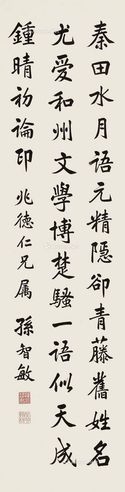 秦田水月語元精隱卻青藤舊姓名
尤愛和州文學博楚騷一語似天成
鍾晴初論印 兆德仁兄屬 孫智敏